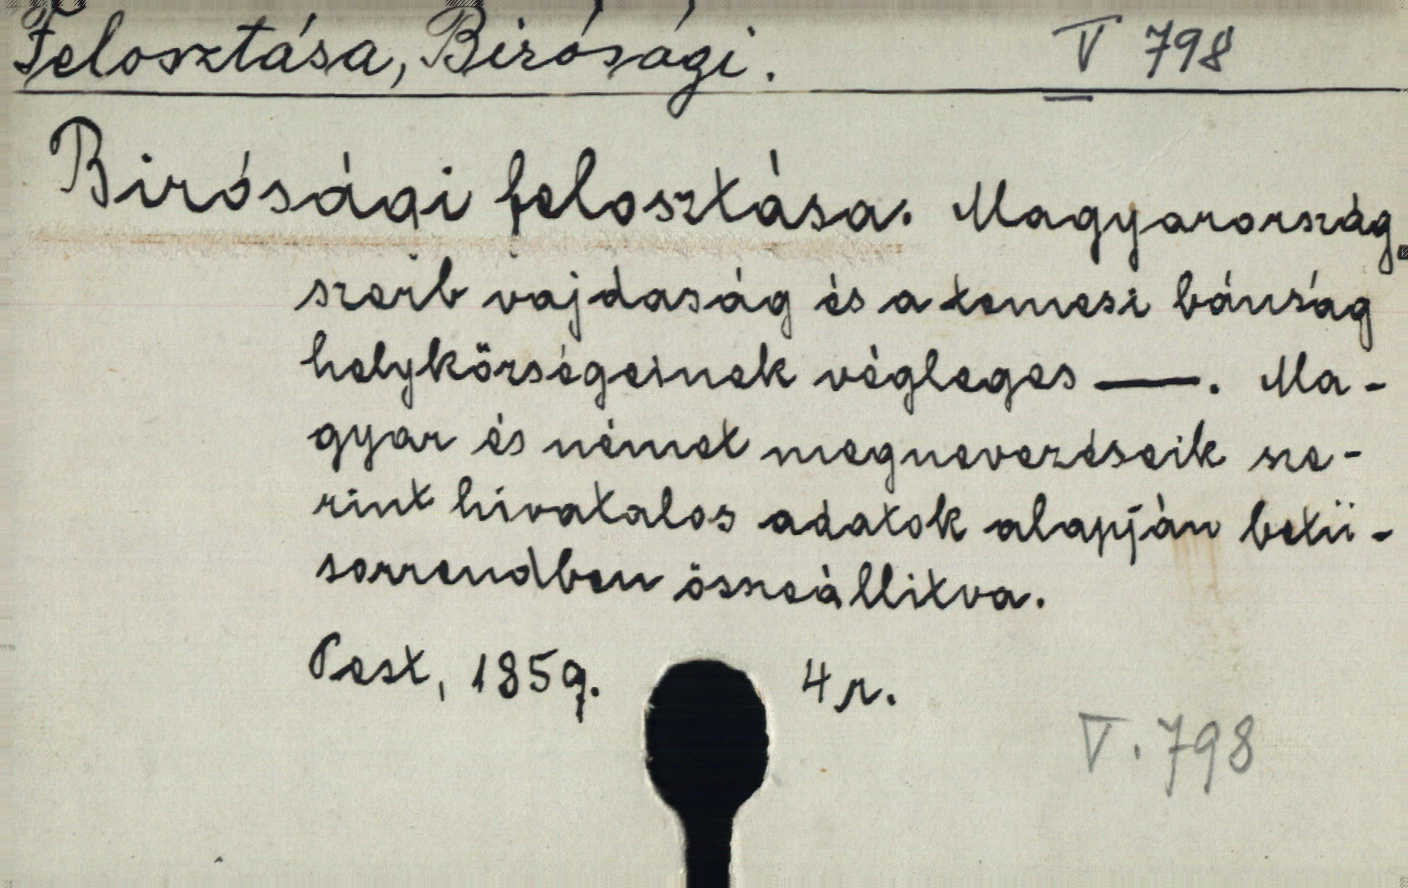 Felosztása, Birósági. V 798
Birósági felosztása. Magyarország,
szerb vajdaság és a temesi bánság
helykörségeinek végleges —. Ma-
gyar és német megnevezéseik sze-
rint hivatalos adatok alapján betü-
sorrendben összeállitva.
Pest, 1859. 4r.
V. 798